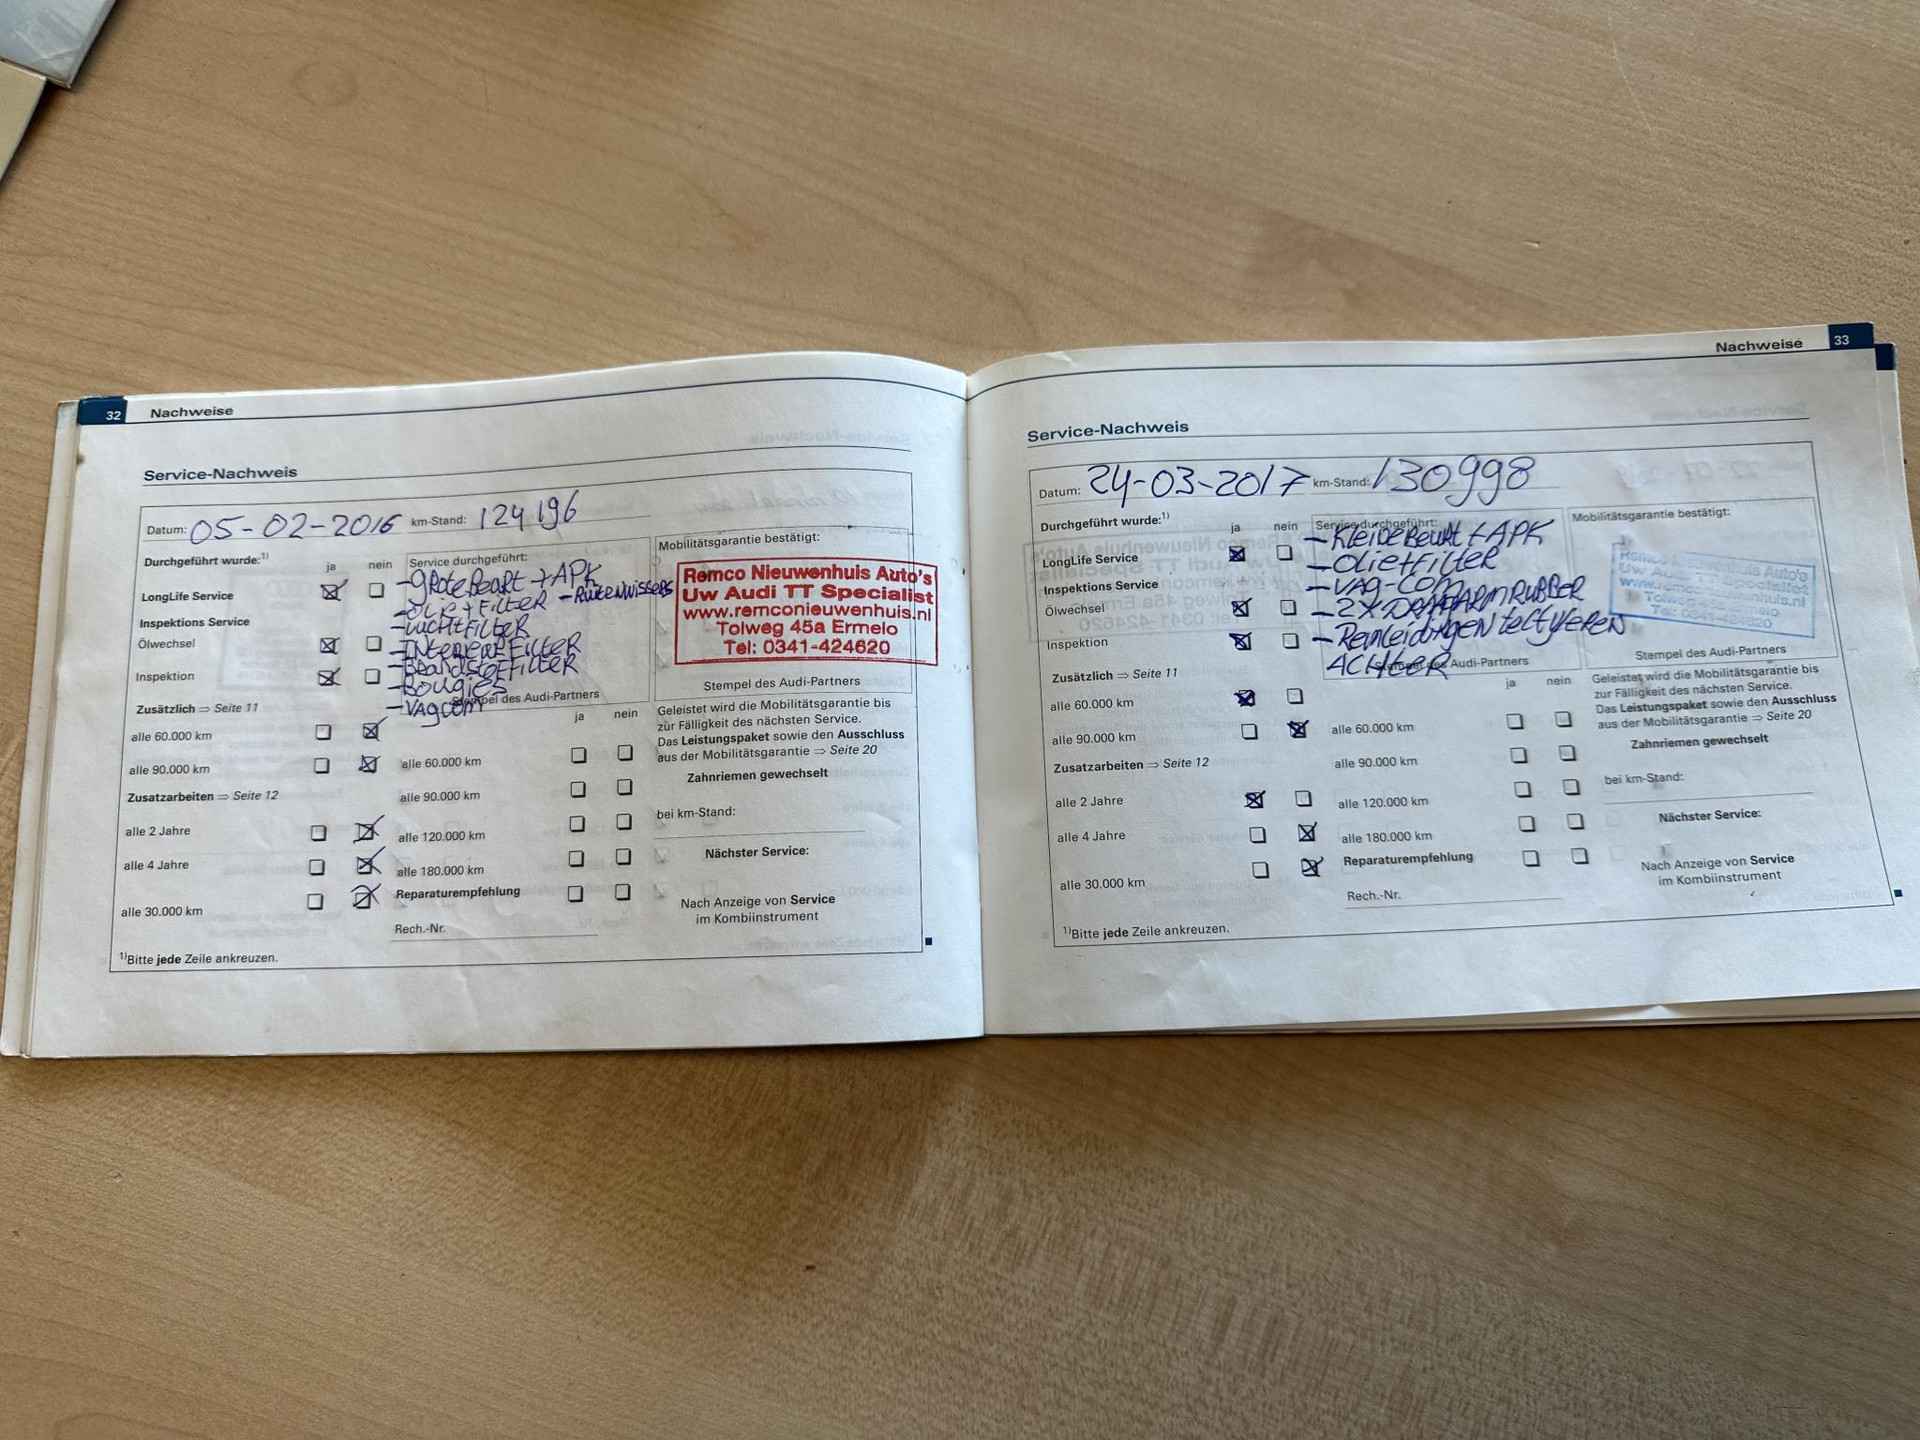 32 Nachweise
Service-Nachweis
Datum: 05-02-2016 km-Stand: 124196
Durchgeführt wurde:1)
ja nein
LongLife Service
Inspektions Service
Ölwechsel
Inspektion
Zusätzlich ⇒ Seite 11
alle 60.000 km
alle 90.000 km
Zusatzarbeiten ⇒ Seite 12
alle 2 Jahre
alle 4 Jahre
alle 30.000 km
1)Bitte jede Zeile ankreuzen.
Service durchgeführt:
-grote Beurt + APK
-olie + Filter -Ruitenwissers
-Luchtfilter
-Interieurfilter
-Brandstoffilter
-Bougies
-Vagcom
Stempel des Audi-Partners
ja nein
alle 60.000 km
alle 90.000 km
alle 120.000 km
alle 180.000 km
Reparaturempfehlung
Rech.-Nr.
Mobilitätsgarantie bestätigt:
Remco Nieuwenhuis Auto's
Uw Audi TT Specialist
www.remconieuwenhuis.nl
Tolweg 45a Ermelo
Tel: 0341-424620
Stempel des Audi-Partners
Geleistet wird die Mobilitätsgarantie bis
zur Fälligkeit des nächsten Service.
Das Leistungspaket sowie den Ausschluss
aus der Mobilitätsgarantie ⇒ Seite 20
Zahnriemen gewechselt
bei km-Stand:
Nächster Service:
Nach Anzeige von Service
im Kombiinstrument
Nachweise 33
Service-Nachweis
Datum: 24-03-2017 km-Stand: 130998
Durchgeführt wurde:1)
ja nein
LongLife Service
Inspektions Service
Ölwechsel
Inspektion
Zusätzlich ⇒ Seite 11
alle 60.000 km
alle 90.000 km
Zusatzarbeiten ⇒ Seite 12
alle 2 Jahre
alle 4 Jahre
alle 30.000 km
1)Bitte jede Zeile ankreuzen.
Service durchgeführt:
-Kleine Beurt + APK
-olie+Filter
-VAG-Com
-2x DRAAGARMRUBBER
-Remleidingen tectyleren
ACHTER
Stempel des Audi-Partners
ja nein
alle 60.000 km
alle 90.000 km
alle 120.000 km
alle 180.000 km
Reparaturempfehlung
Rech.-Nr.
Mobilitätsgarantie bestätigt:
Remco Nieuwenhuis Auto's
Uw Audi TT Specialist
www.remconieuwenhuis.nl
Tolweg 45a Ermelo
Tel: 0341-424620
Stempel des Audi-Partners
Geleistet wird die Mobilitätsgarantie bis
zur Fälligkeit des nächsten Service.
Das Leistungspaket sowie den Ausschluss
aus der Mobilitätsgarantie ⇒ Seite 20
Zahnriemen gewechselt
bei km-Stand:
Nächster Service:
Nach Anzeige von Service
im Kombiinstrument